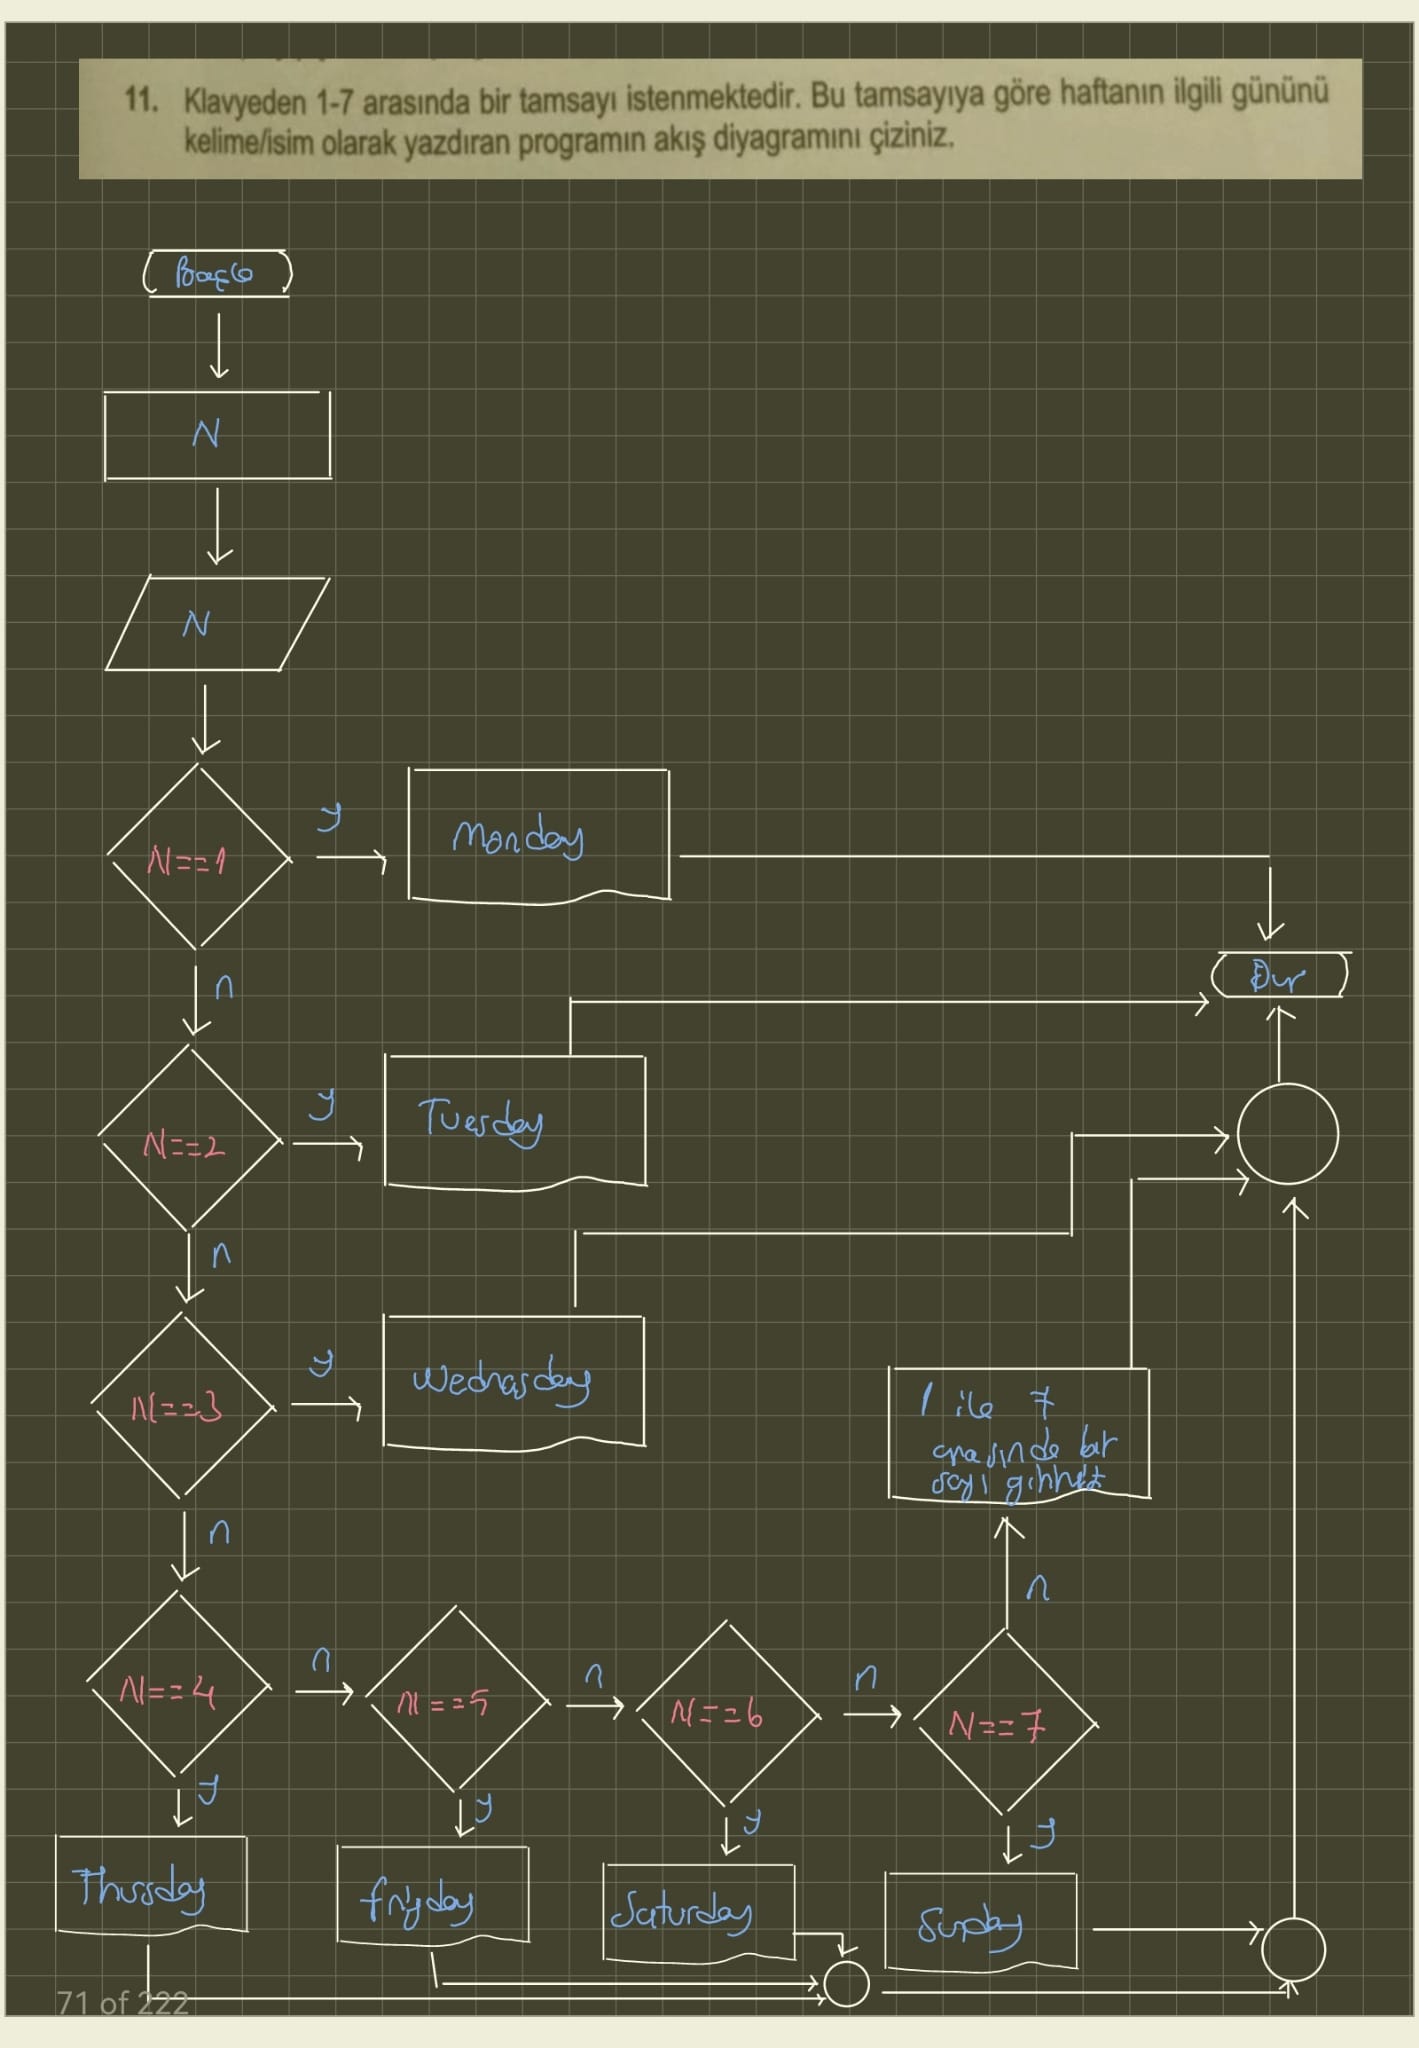 11. Klavyeden 1-7 arasında bir tamsayı istenmektedir. Bu tamsayıya göre haftanın ilgili gününü
kelime/isim olarak yazdıran programın akış diyagramını çiziniz.
Başla
N
N
N==1
y
Monday
n
Dur
N==2
y
Tuesday
n
N==3
y
Wednasday
n
1 ile 7
arasında bir
sayı giriniz
n
N==4
n
N==5
n
N==6
n
N==7
y
y
y
y
Thursday
friyday
Saturday
Sunday
71 of 222